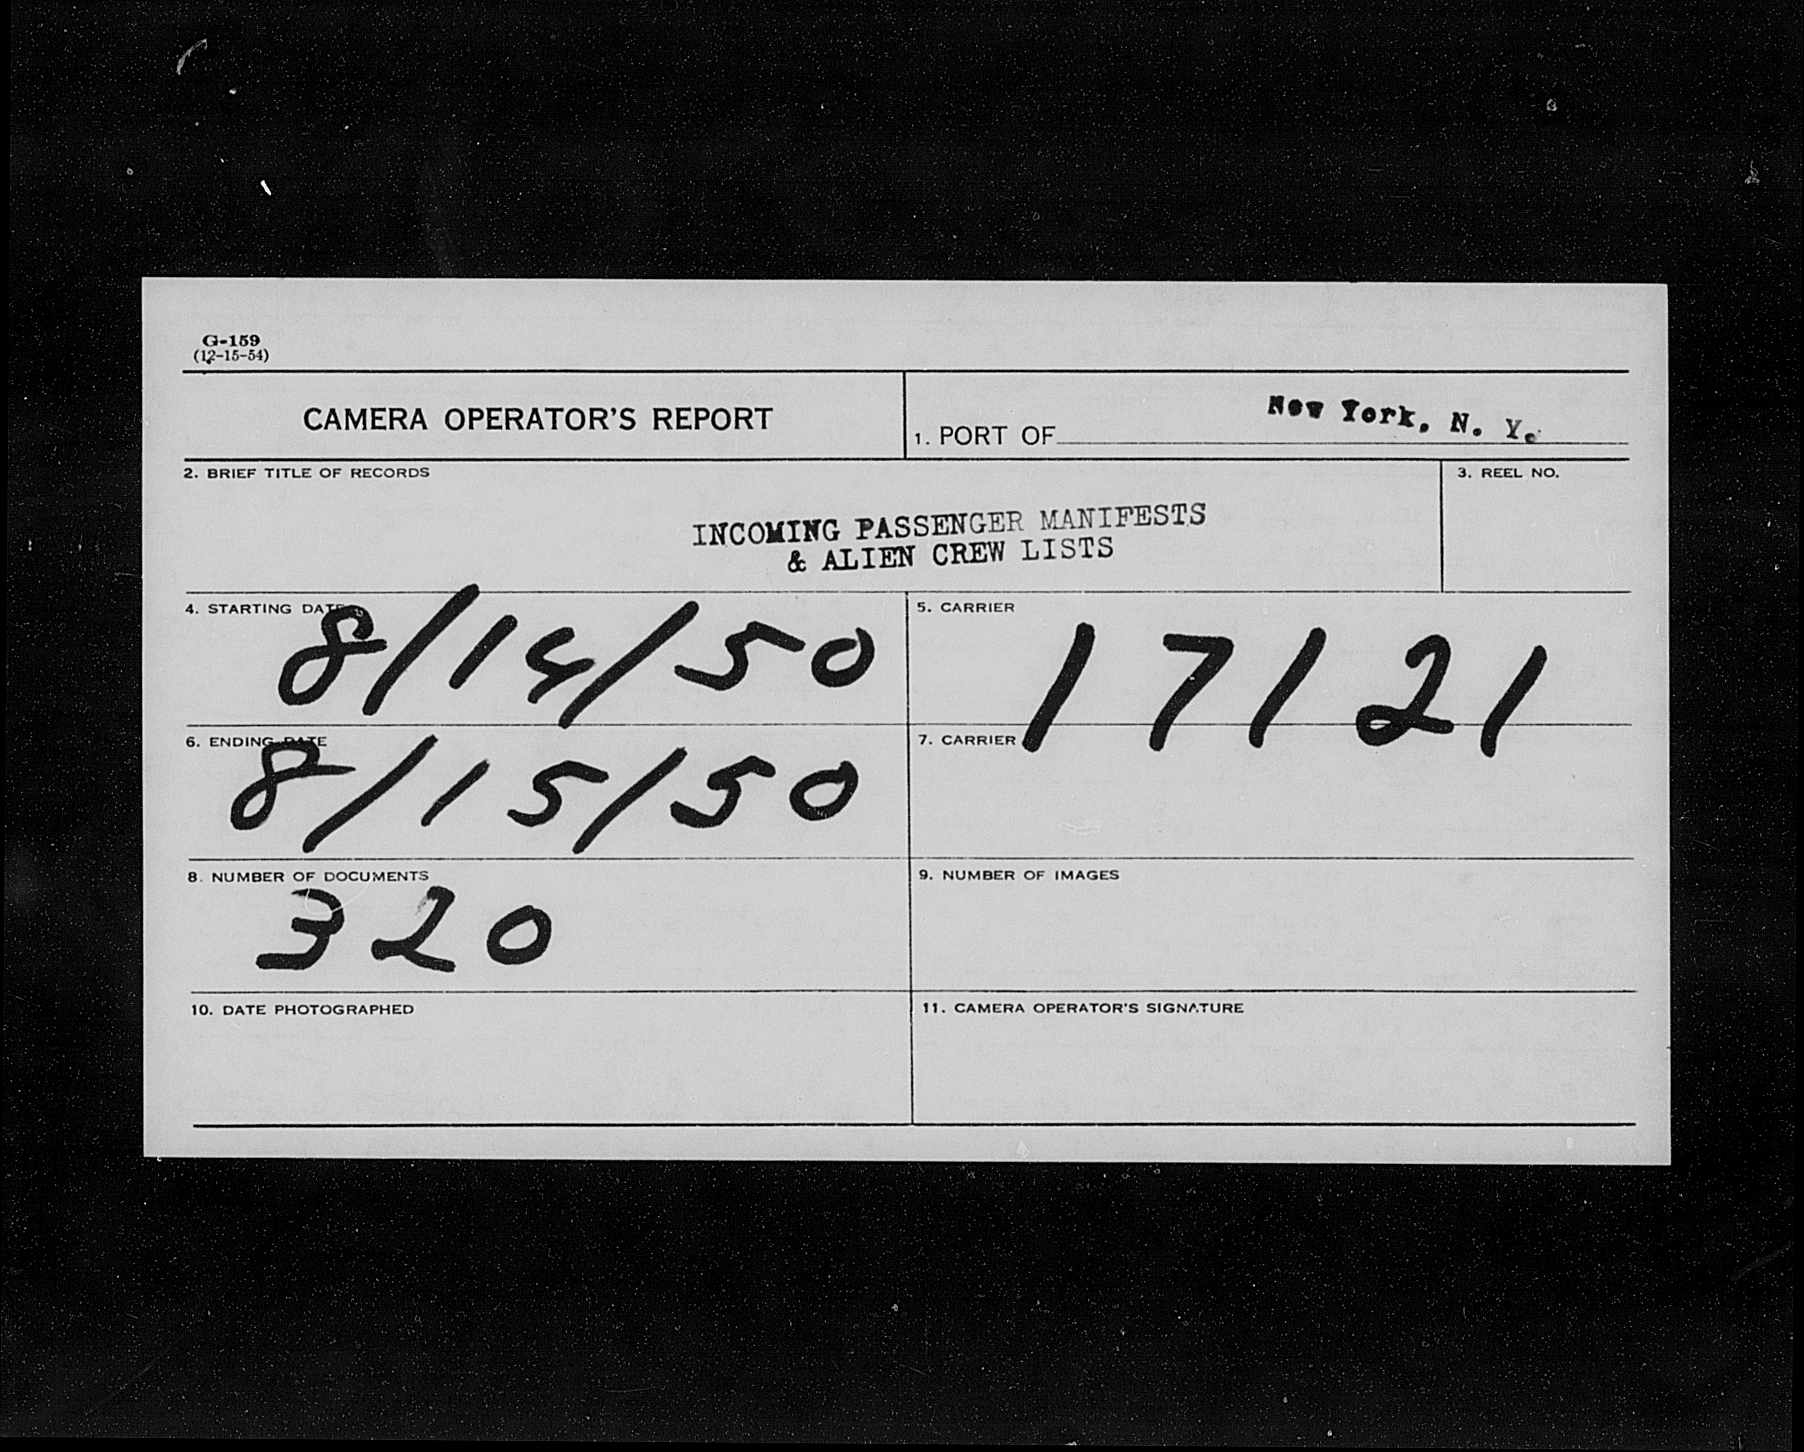 G-159
(12-15-54)
CAMERA OPERATOR'S REPORT
1. PORT OF New York, N. Y.
2. BRIEF TITLE OF RECORDS
3. REEL NO.
INCOMING PASSENGER MANIFESTS
& ALIEN CREW LISTS
4. STARTING DATE
8/14/50
5. CARRIER
17121
6. ENDING DATE
8/15/50
7. CARRIER
8. NUMBER OF DOCUMENTS
320
9. NUMBER OF IMAGES
10. DATE PHOTOGRAPHED
11. CAMERA OPERATOR'S SIGNATURE